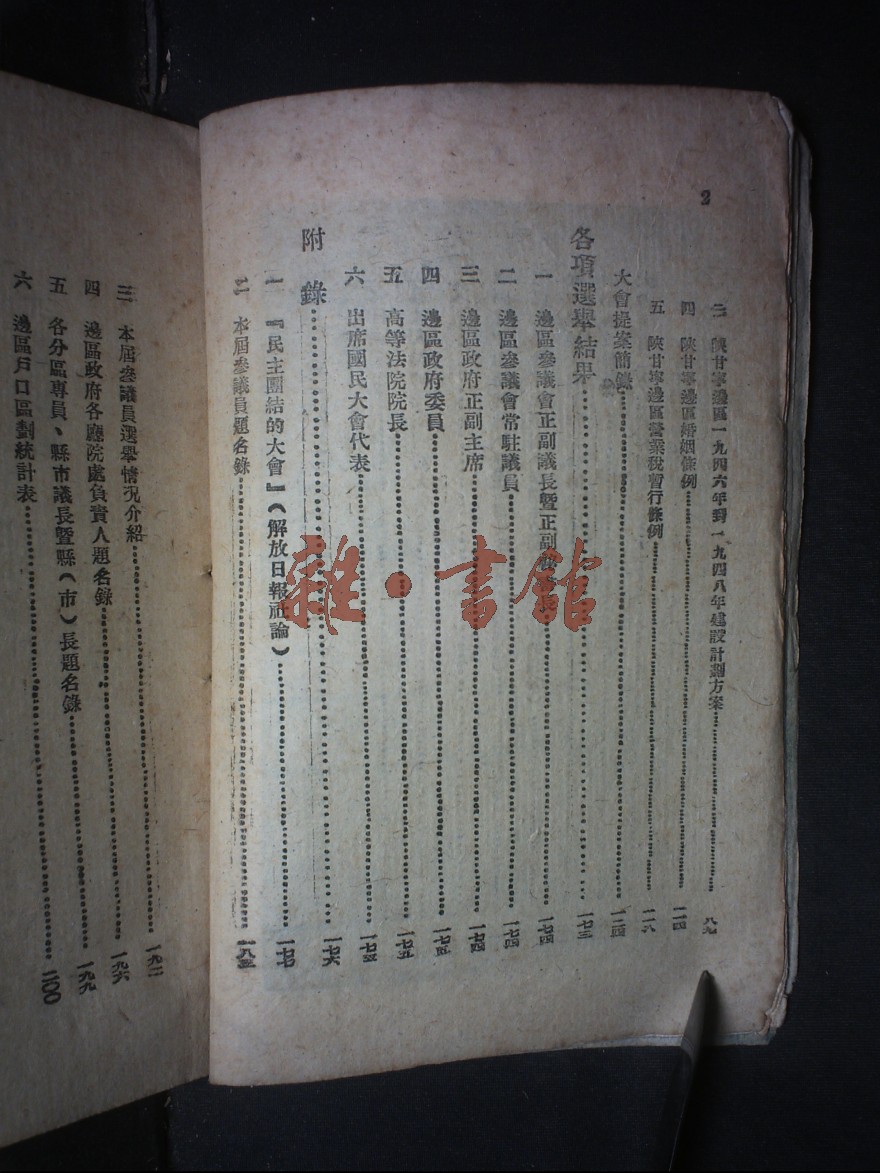 2
三 陝甘寧邊區一九四六年到一九四八年建設計劃方案 八九
四 陝甘寧邊區婚姻條例
五 陝甘寧邊區營業稅暫行條例 一一八
大會提案簡錄 一二四
各項選舉結果 一七三
一 邊區參議會正副議長暨正副秘書長 一七四
二 邊區參議會常駐議員 一七四
三 邊區政府正副主席 一七四
四 邊區政府委員 一七五
五 高等法院院長 一七五
六 出席國民大會代表 一七五
附錄 一七六
一 『民主團結的大會』（解放日報社論） 一七七
二 本屆參議員題名錄 一八三
三 本屆參議員選舉情况介紹 一九二
四 邊區政府各廳院處負責人題名錄 一九六
五 各分區專員、縣市議長暨縣（市）長題名錄 一九九
六 邊區戶口區劃統計表 二〇〇
雜·書館